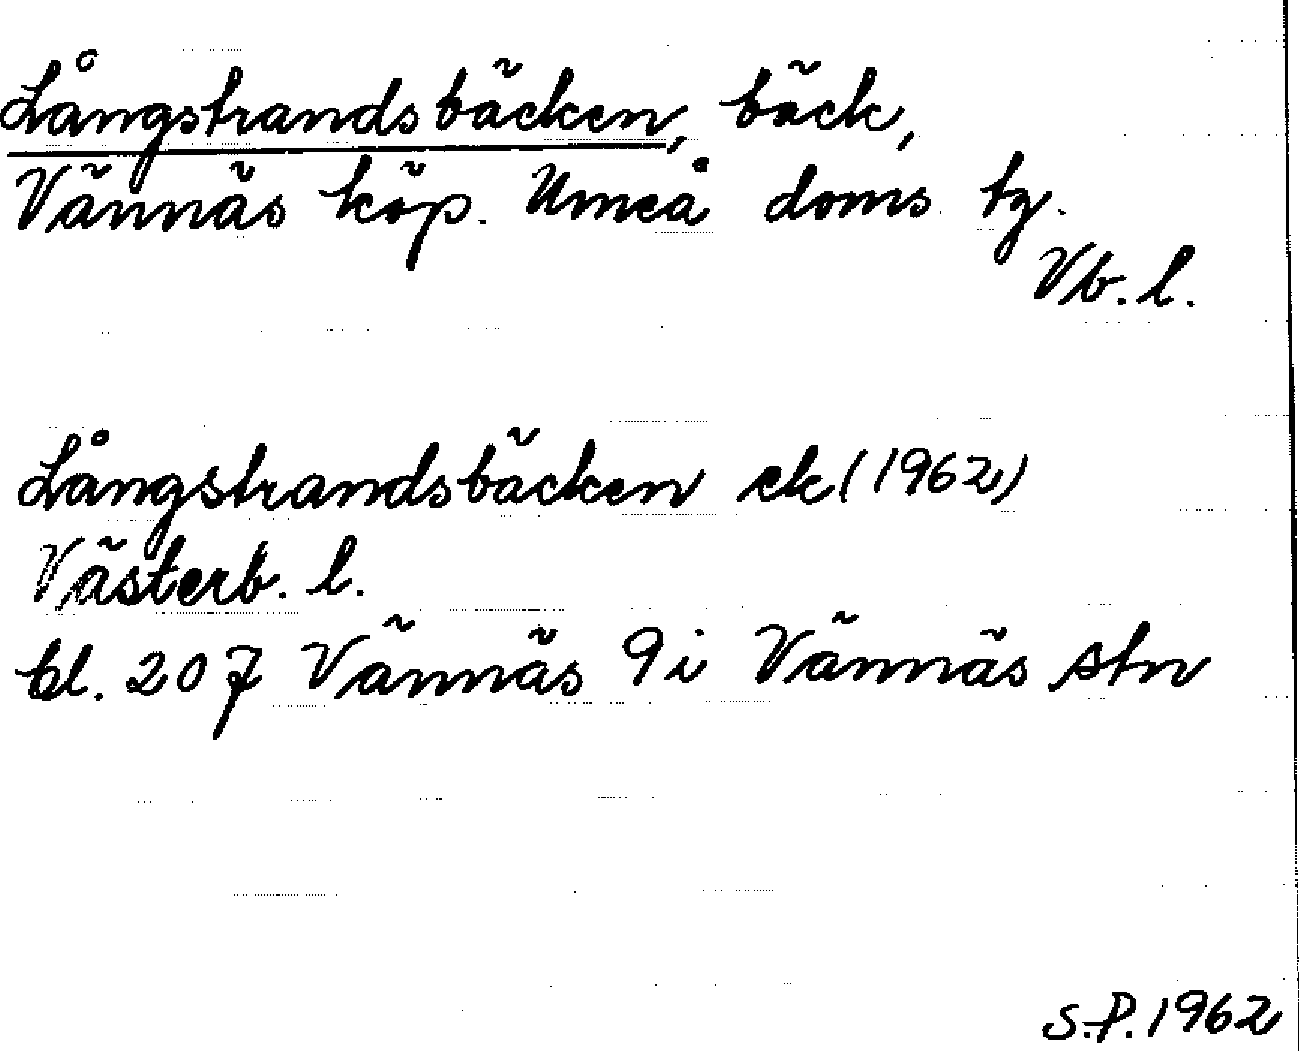 Långstrandsbäcken, bäck,
Vännäs köp. Umeå doms. tg.
Vb. l.
Långstrandsbäcken ek (1962)
Västerb. l.
bl. 207 Vännäs 9i Vännäs stn
S.P. 1962